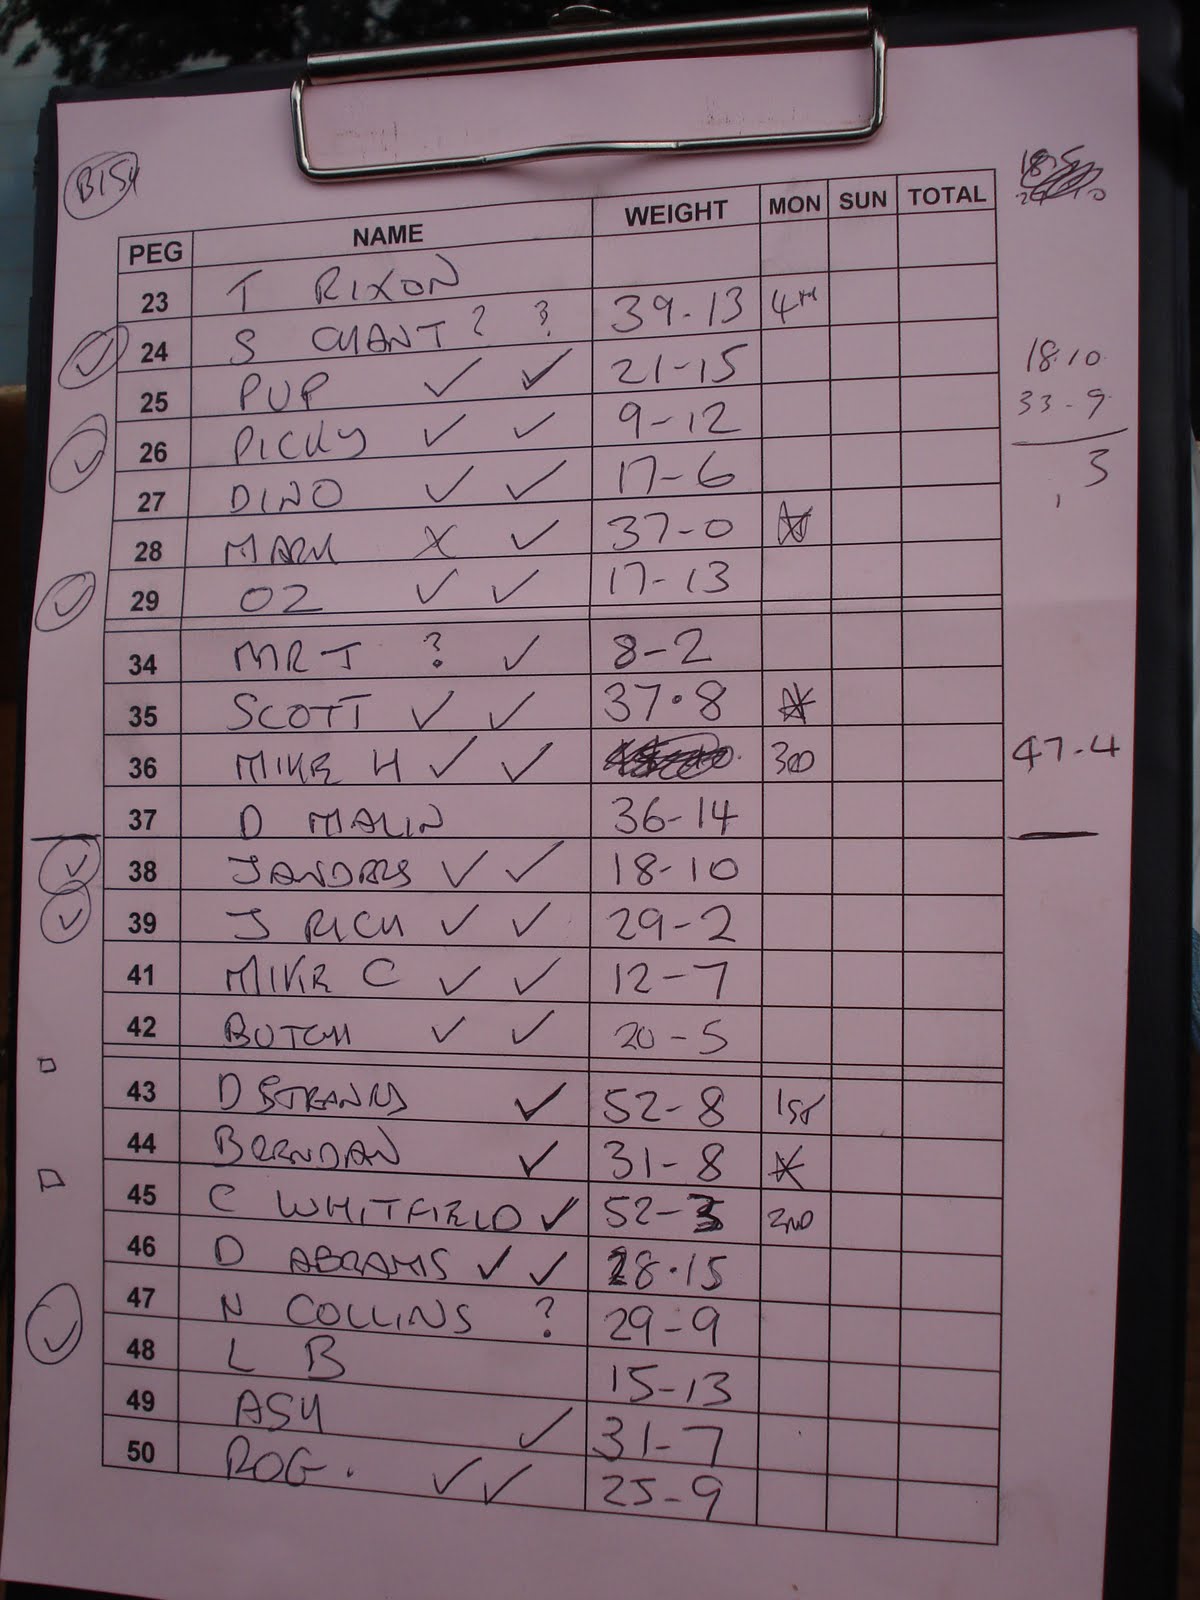 B154
PEG NAME WEIGHT MON SUN TOTAL
23 T RIXON
24 S CHANT ? ? 39.13 4TH
25 PUP ✓ ✓ 21-15
18.10
26 PICKY ✓ ✓ 9-12
33-9
27 DINO ✓ ✓ 17-6
3
28 MARK X ✓ 37-0
29 OZ ✓ ✓ 17-13
34 MR T ? ✓ 8-2
35 SCOTT ✓ ✓ 37.8
36 MIKE H ✓ ✓ 3RD 47-4
37 D MALIN 36-14
38 ✓ ✓ 18-10
39 J RICH ✓ ✓ 29-2
41 MIKE C ✓ ✓ 12-7
42 BUTCH ✓ ✓ 20-5
43 D STRANKS ✓ 52-8 1ST
44 BRENDAN ✓ 31-8
45 C WHITFIELD ✓ 52-3 2ND
46 D ABRAMS ✓ ✓ 28.15
47 N COLLINS ? 29-9
48 L B 15-13
49 ASH ✓ 31-7
50 ROG. ✓ ✓ 25-9